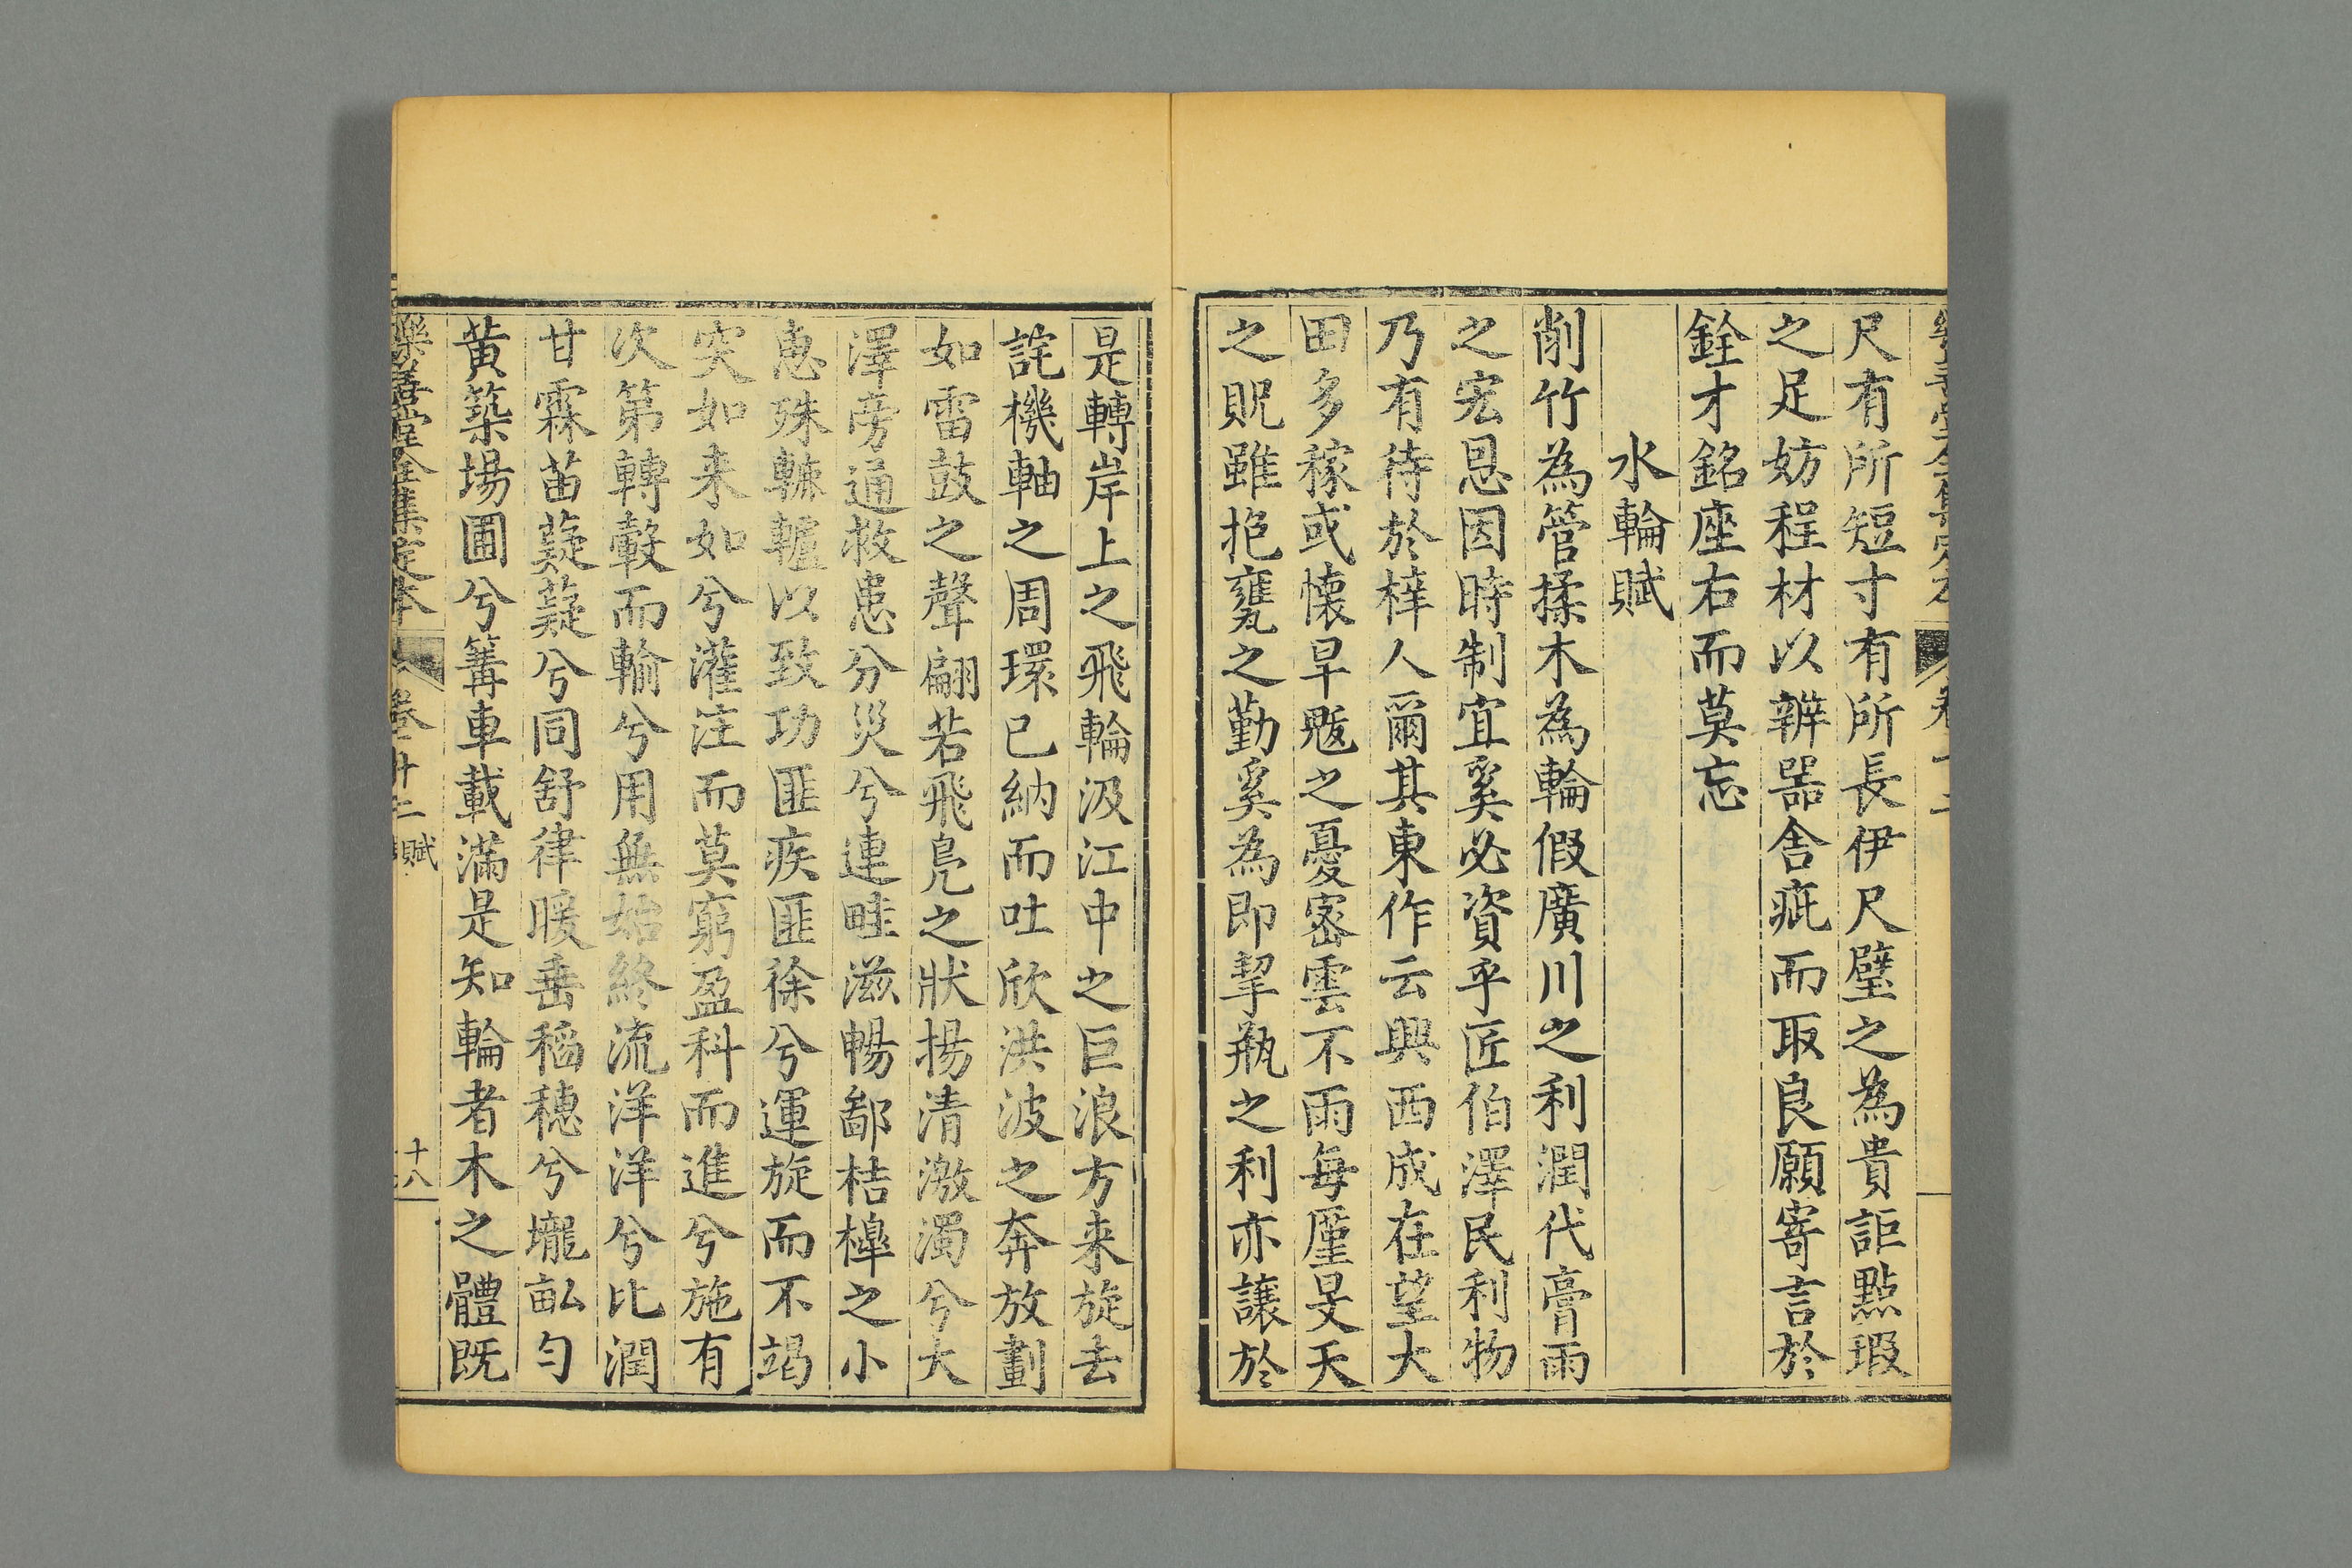 尺有所短寸有所長伊尺璧之為貴詎點瑕
之足妨程材以辨器舍疵而取良願寄言於
銓才銘座右而莫忘
水輪賦
削竹為管揉木為輪假廣川之利潤代膏雨
之宏恩因時制宜奚必資乎匠伯澤民利物
乃有待於梓人爾其東作云興西成在望大
田多稼或懷旱魃之憂密雲不雨每廑旻天
之貺雖抱甕之勤奚為即挈瓶之利亦讓於
是轉岸上之飛輪汲江中之巨浪方来旋去
詫機軸之周環已納而吐欣洪波之奔放劃
如雷鼓之聲翩若飛鳧之狀揚清激濁兮大
澤旁通救患分災兮連畦滋暢鄙桔槹之小
惠殊轆轤以致功匪疾匪徐兮運旋而不竭
突如来如兮灌注而莫窮盈科而進兮施有
次第轉轂而輸兮用無始終流洋洋兮比潤
甘霖苗薿薿兮同舒律暖垂稻穗兮壠畝勻
黃築場圃兮篝車載滿是知輪者木之體既
樂善堂全集定本 卷十二 賦 十八